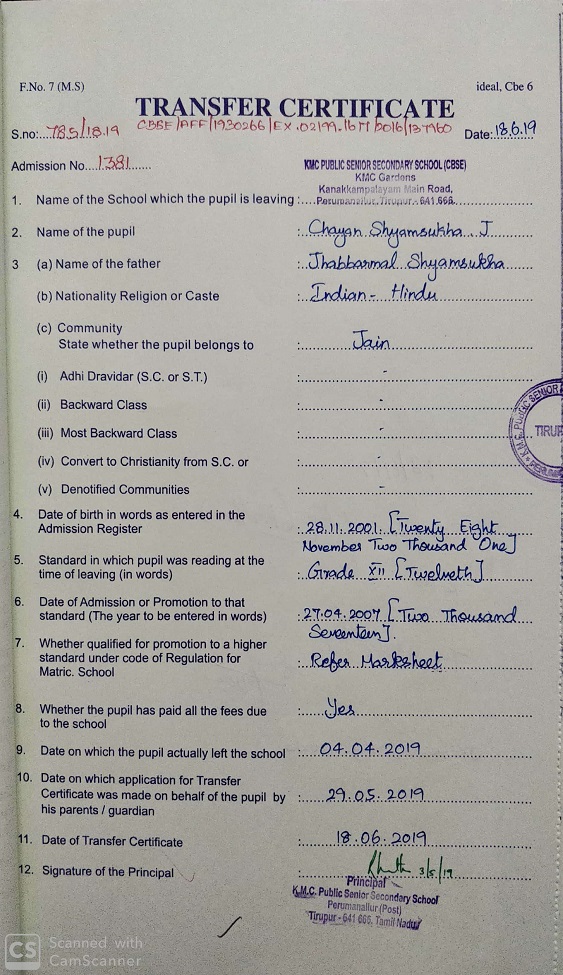 F.No. 7 (M.S) ideal, Cbe 6
TRANSFER CERTIFICATE
S.no: 785/18.19 CBSE/AFF/1930266/EX.02199.1617/2016/137960 Date: 18.6.19
Admission No. 1381
KMC PUBLIC SENIOR SECONDARY SCHOOL (CBSE)
KMC Gardens
Kanakkampalayam Main Road,
1. Name of the School which the pupil is leaving : Perumanallur, Tirupur - 641 666.
2. Name of the pupil : Chayan Shyamsukha . J
3 (a) Name of the father : Jhabbarmal Shyamsukha
(b) Nationality Religion or Caste : Indian - Hindu
(c) Community
State whether the pupil belongs to : Jain
(i) Adhi Dravidar (S.C. or S.T.) : -
(ii) Backward Class : -
(iii) Most Backward Class : -
(iv) Convert to Christianity from S.C. or : -
(v) Denotified Communities : -
4. Date of birth in words as entered in the
Admission Register : 28.11.2001 [Twenty Eight
November Two Thousand One]
5. Standard in which pupil was reading at the
time of leaving (in words) : Grade XII [Twelveth]
6. Date of Admission or Promotion to that
standard (The year to be entered in words) : 27.04.2007 [Two Thousand
Seventeen].
7. Whether qualified for promotion to a higher
standard under code of Regulation for : Refer Marksheet
Matric. School
8. Whether the pupil has paid all the fees due : Yes
to the school
9. Date on which the pupil actually left the school : 04.04.2019
10. Date on which application for Transfer
Certificate was made on behalf of the pupil by : 29.05.2019
his parents / guardian
11. Date of Transfer Certificate : 18.06.2019
12. Signature of the Principal : 3/5/19
Principal
K.M.C. Public Senior Secondary School
Perumanallur (Post)
Tirupur - 641 666, Tamil Nadu
K.M.C. PUBLIC SENIOR
TIRUP
CS Scanned with
CamScanner